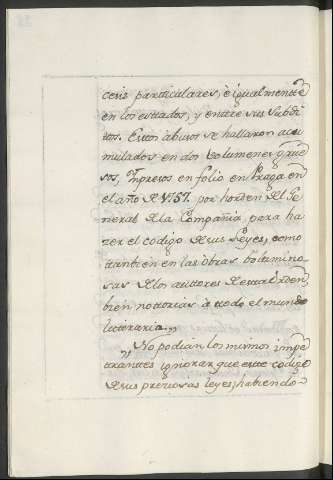 ceris particulares, è igualmentte
en los esttados, y enttre sus Subdi
tos. Esttos abusos se hallaron acu
mulados en dos volumenes grue
sos, Impresos en folio en Praga en
el año de 1757. por horden del Ge
neral de la Compañia, para ha
zer el codigo de sus Leyes, como
tambien en las obras bolumino
sas de los auttores de estta Orden
bien nottorias à ttodo el mundo
litterario.,,
,, No podian los mismos impe
ttranttes ignorar que estte codigo
de sus preciosas leyes, habiendo